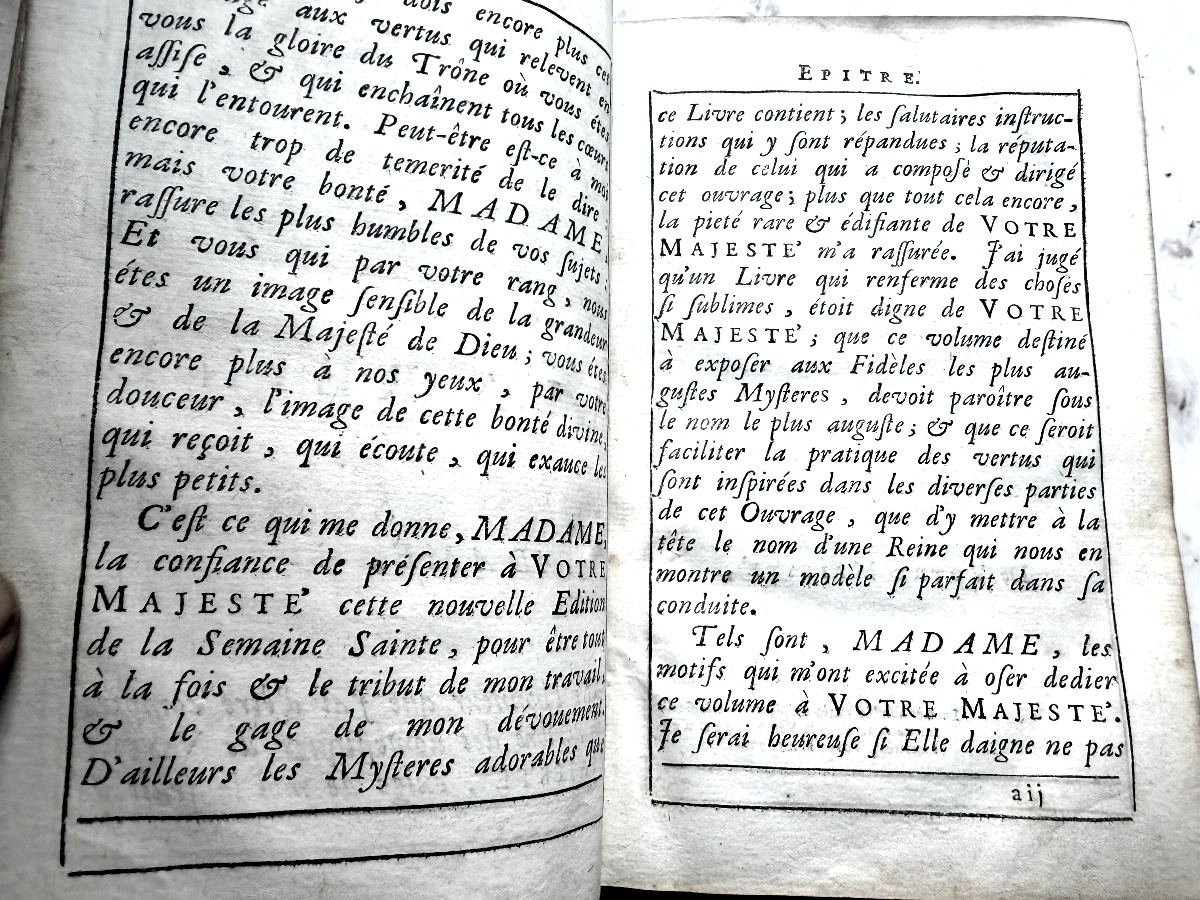 dois encore plus ces
aux vertus qui relevent en
vous la gloire du Trône où vous étes
aſſiſe, & qui enchaînent tous les cœurs
qui l'entourent. Peut-être eſt-ce à moi
encore trop de temerité de le dire;
mais votre bonté, MADAME,
raſſure les plus humbles de vos ſujets:
Et vous qui par votre rang, nous
étes un image ſenſible de la grandeur
& de la Majeſté de Dieu; vous étes
encore plus à nos yeux, par votre
douceur, l'image de cette bonté divine,
qui reçoit, qui écoute, qui exauce les
plus petits.
C'eſt ce qui me donne, MADAME,
la confiance de préſenter à VOTRE
MAJESTE' cette nouvelle Edition
de la Semaine Sainte, pour être tout
à la fois & le tribut de mon travail,
& le gage de mon dévouement.
D'ailleurs les Myſteres adorables que
EPITRE.
ce Livre contient; les ſalutaires inſtruc-
tions qui y ſont répandues; la réputa-
tion de celui qui a compoſé & dirigé
cet ouvrage; plus que tout cela encore,
la pieté rare & édifiante de VOTRE
MAJESTE' m'a raſſurée. J'ai jugé
qu'un Livre qui renferme des choſes
ſi ſublimes, étoit digne de VOTRE
MAJESTE'; que ce volume deſtiné
à expoſer aux Fidèles les plus au-
guſtes Myſteres, devoit paroître ſous
le nom le plus auguſte; & que ce ſeroit
faciliter la pratique des vertus qui
ſont inſpirées dans les diverſes parties
de cet Ouvrage, que d'y mettre à la
tête le nom d'une Reine qui nous en
montre un modèle ſi parfait dans ſa
conduite.
Tels ſont, MADAME, les
motifs qui m'ont excitée à oſer dedier
ce volume à VOTRE MAJESTE'.
Je ſerai heureuſe ſi Elle daigne ne pas
aij